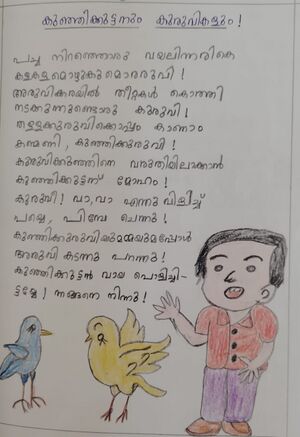 കുഞ്ഞിക്കുട്ടനും കുരുവികളും !
പച്ച നിറഞ്ഞൊരു വയലിന്നരികെ
കളകളമൊഴുകുമൊരരുവി !
അരുവിക്കരയിൽ തീറ്റകൾ കൊത്തി
നടക്കുന്നുണ്ടൊരു കുരുവി !
തള്ളക്കുരുവിക്കൊപ്പം കാണാം
കണ്മണി , കുഞ്ഞിക്കുരുവി !
കുരുവിക്കുഞ്ഞിനെ വരുതിയിലാക്കാൻ
കുഞ്ഞിക്കുട്ടന് മോഹം !
കുരുവീ ! വാ, വാ എന്നു വിളിച്ച്
പയ്യെ , പിമ്പേ ചെന്നു !
കുഞ്ഞിക്കുരുവിയുമമ്മയുമപ്പോൾ
അരുവി കടന്നു പറന്നു !
കുഞ്ഞിക്കുട്ടൻ വായ പൊളിച്ചി-
ട്ടയ്യേ ! ന്നങ്ങനെ നിന്നു !